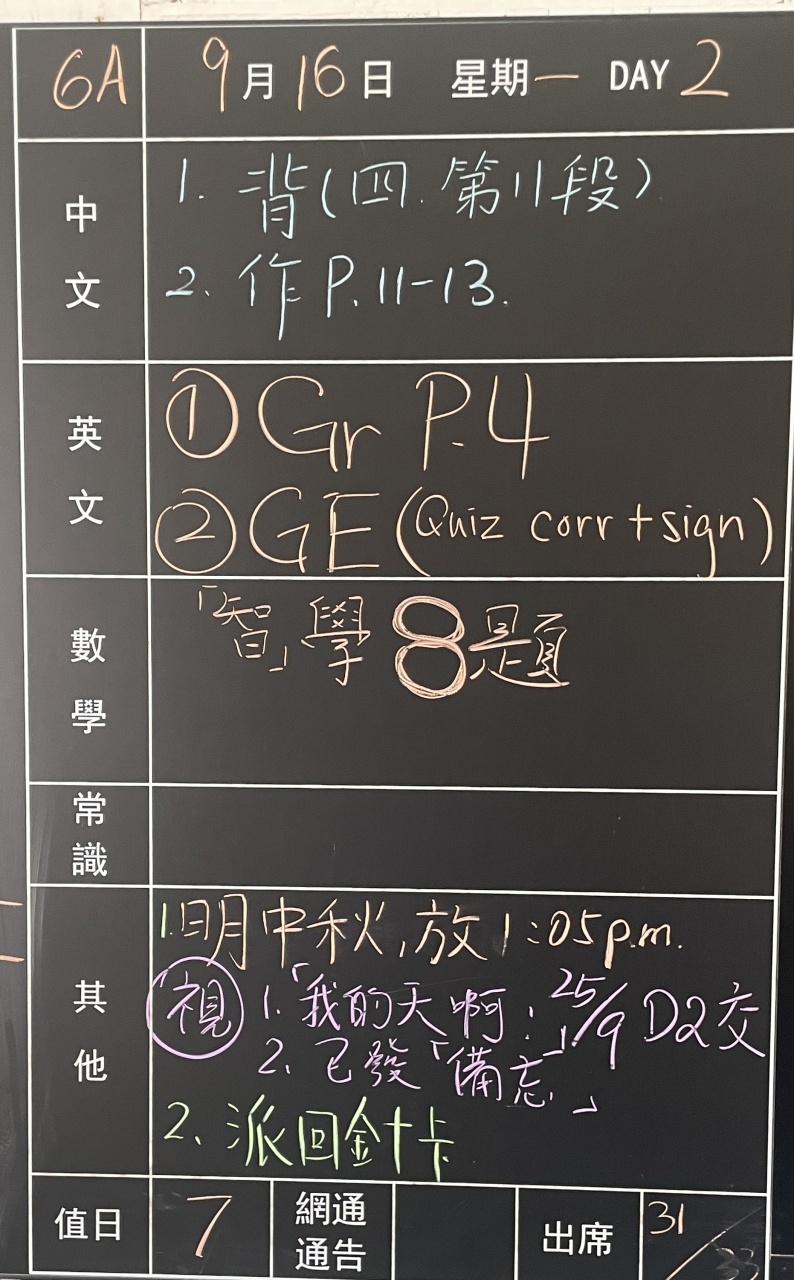 6A 9月16日 星期一 DAY 2
中文
1. 背(四.第11段)
2. 作P.11-13.
英文
① Gr P.4
② GE (Quiz corr + sign)
數學
「智」學 8題
常識
其他
1.明中秋,放1:05p.m.
視 1.「我的天啊!」25/9 D2交
2. 已發「備忘」
2. 派回針卡
值日 7 網通通告 出席 31/33